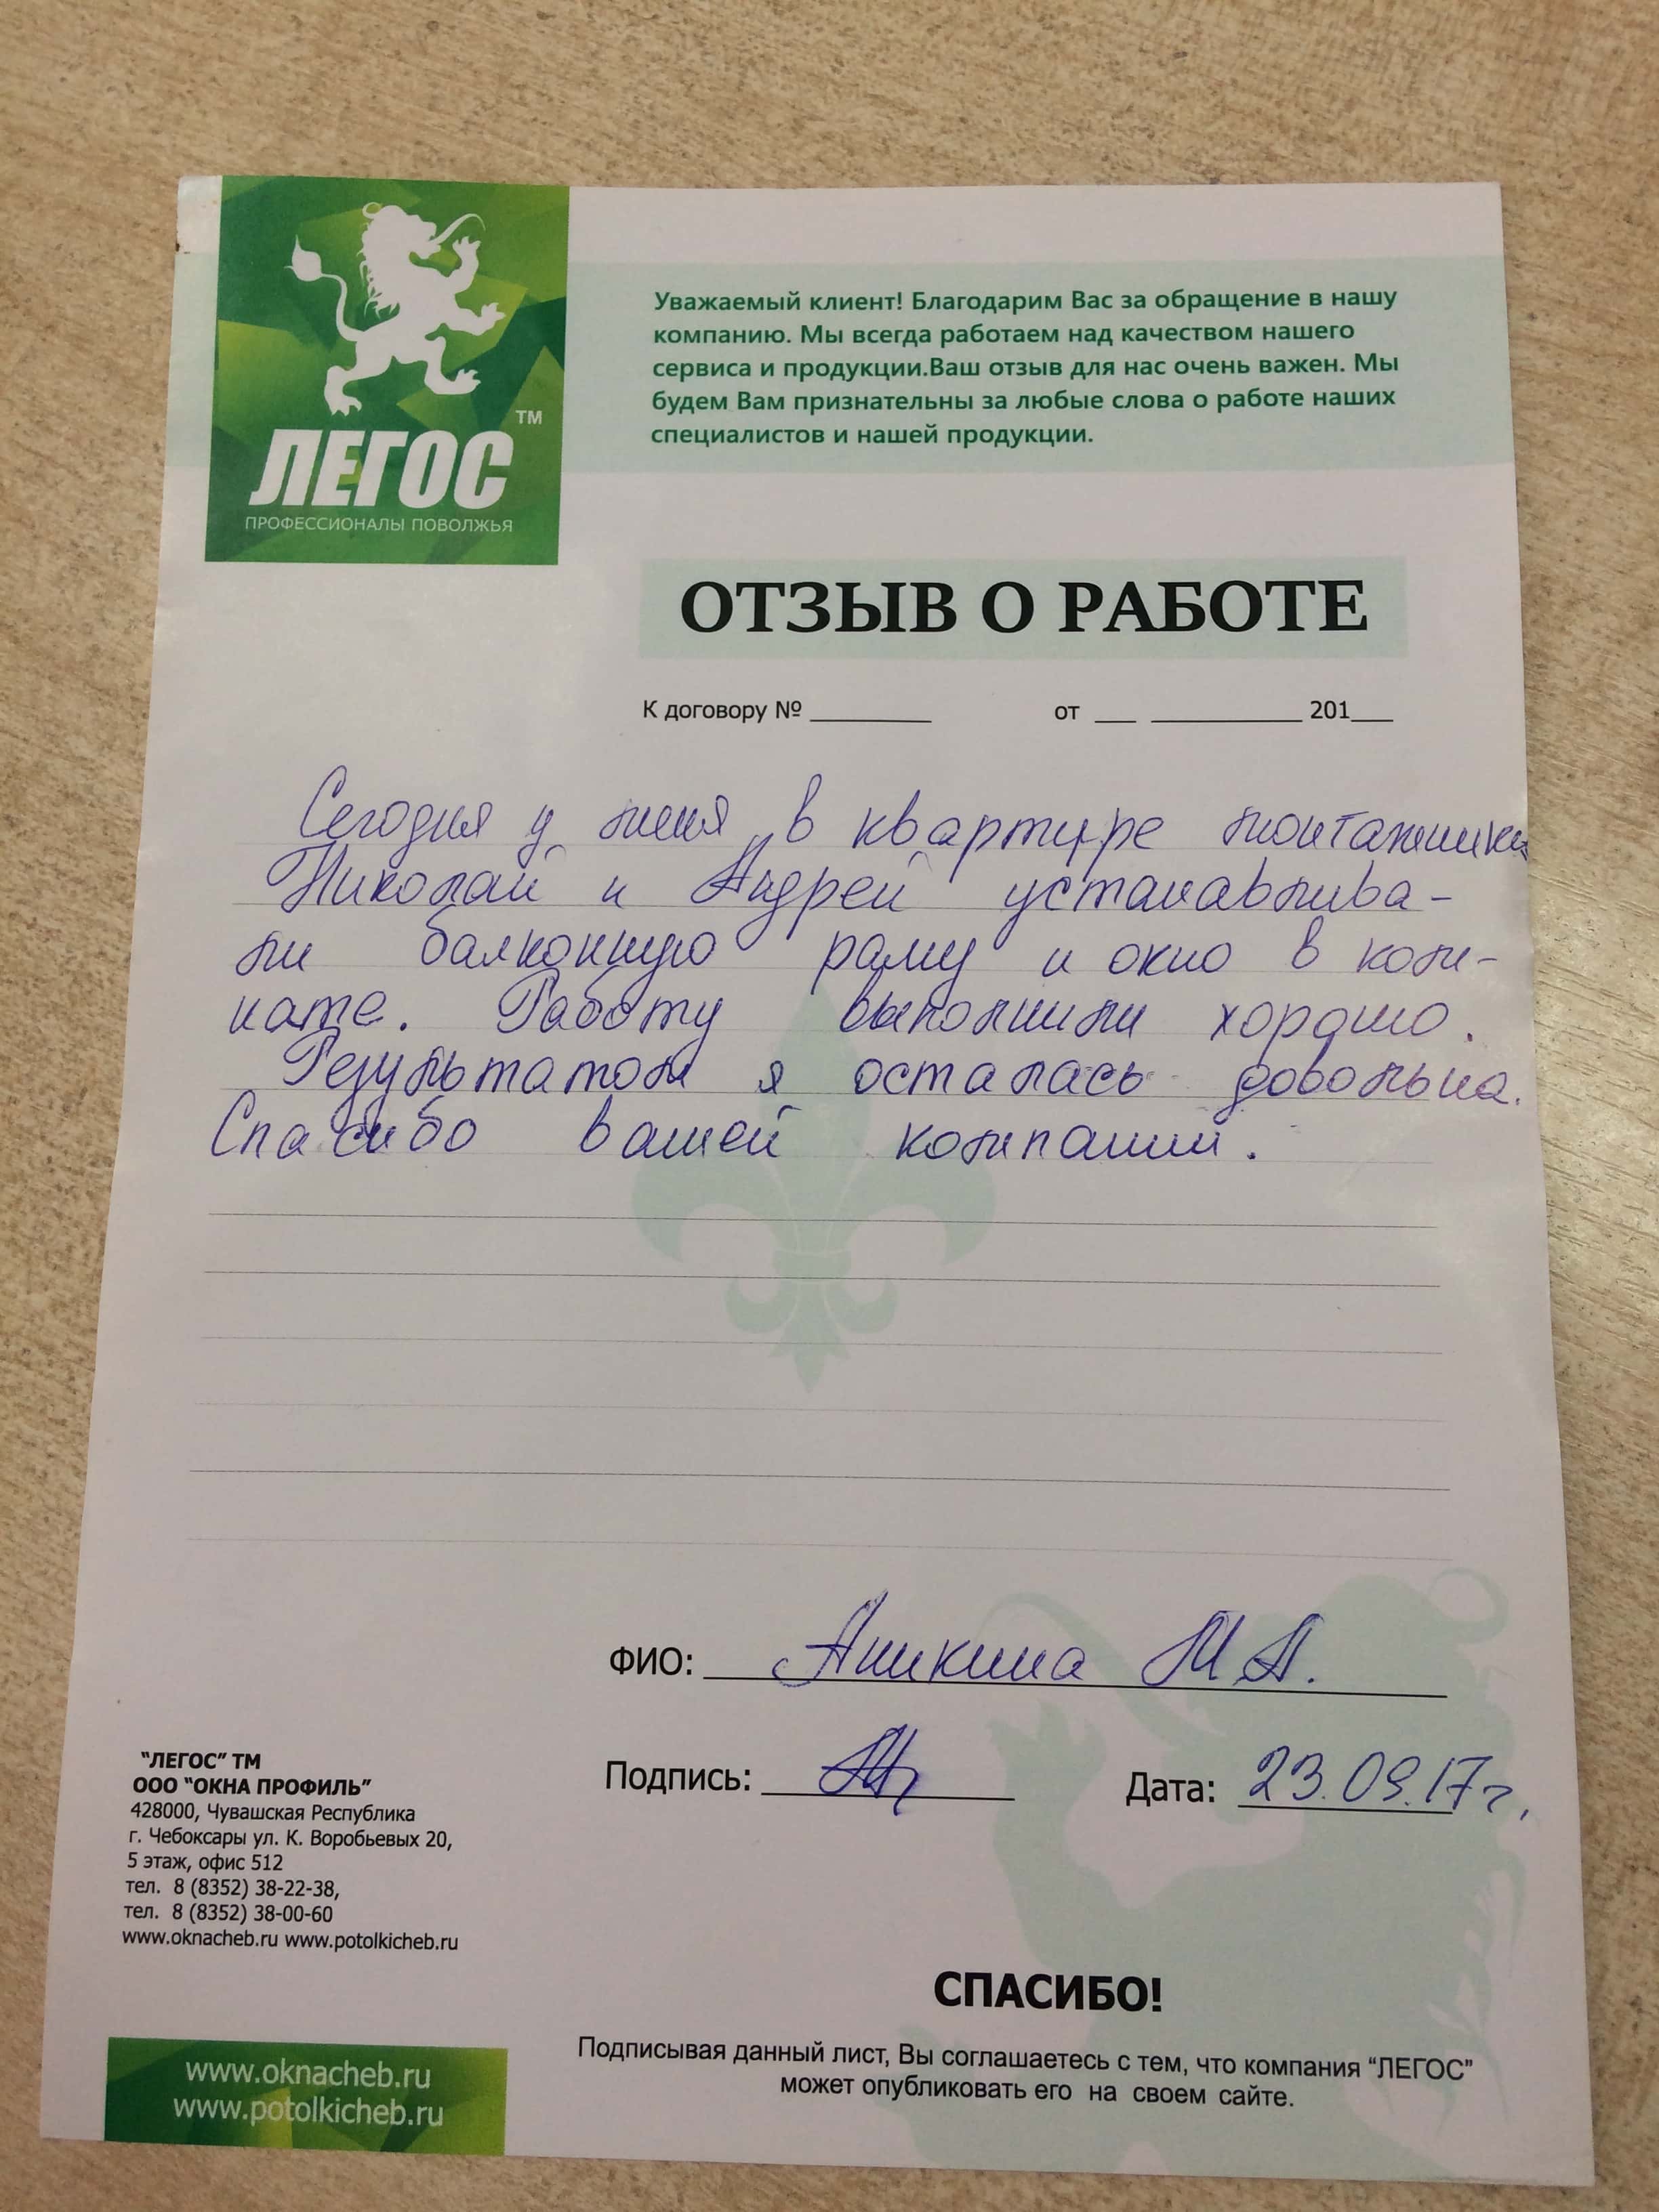 ТМ
ЛЕГОС
ПРОФЕССИОНАЛЫ ПОВОЛЖЬЯ
Уважаемый клиент! Благодарим Вас за обращение в нашу
компанию. Мы всегда работаем над качеством нашего
сервиса и продукции.Ваш отзыв для нас очень важен. Мы
будем Вам признательны за любые слова о работе наших
специалистов и нашей продукции.
ОТЗЫВ О РАБОТЕ
К договору № ________ от ___ __________ 201___
Сегодня у меня в квартире монтажники
Николай и Андрей устанавлива-
ли балконную раму и окно в ком-
нате. Работу выполнили хорошо.
Результатом я осталась довольна.
Спасибо вашей компании.
ФИО: Аникина М А.
Подпись:
Дата: 23.09.17г.
"ЛЕГОС" ТМ
ООО "ОКНА ПРОФИЛЬ"
428000, Чувашская Республика
г. Чебоксары ул. К. Воробьевых 20,
5 этаж, офис 512
тел. 8 (8352) 38-22-38,
тел. 8 (8352) 38-00-60
www.oknacheb.ru www.potolkicheb.ru
СПАСИБО!
Подписывая данный лист, Вы соглашаетесь с тем, что компания "ЛЕГОС"
может опубликовать его на своем сайте.
www.oknacheb.ru
www.potolkicheb.ru